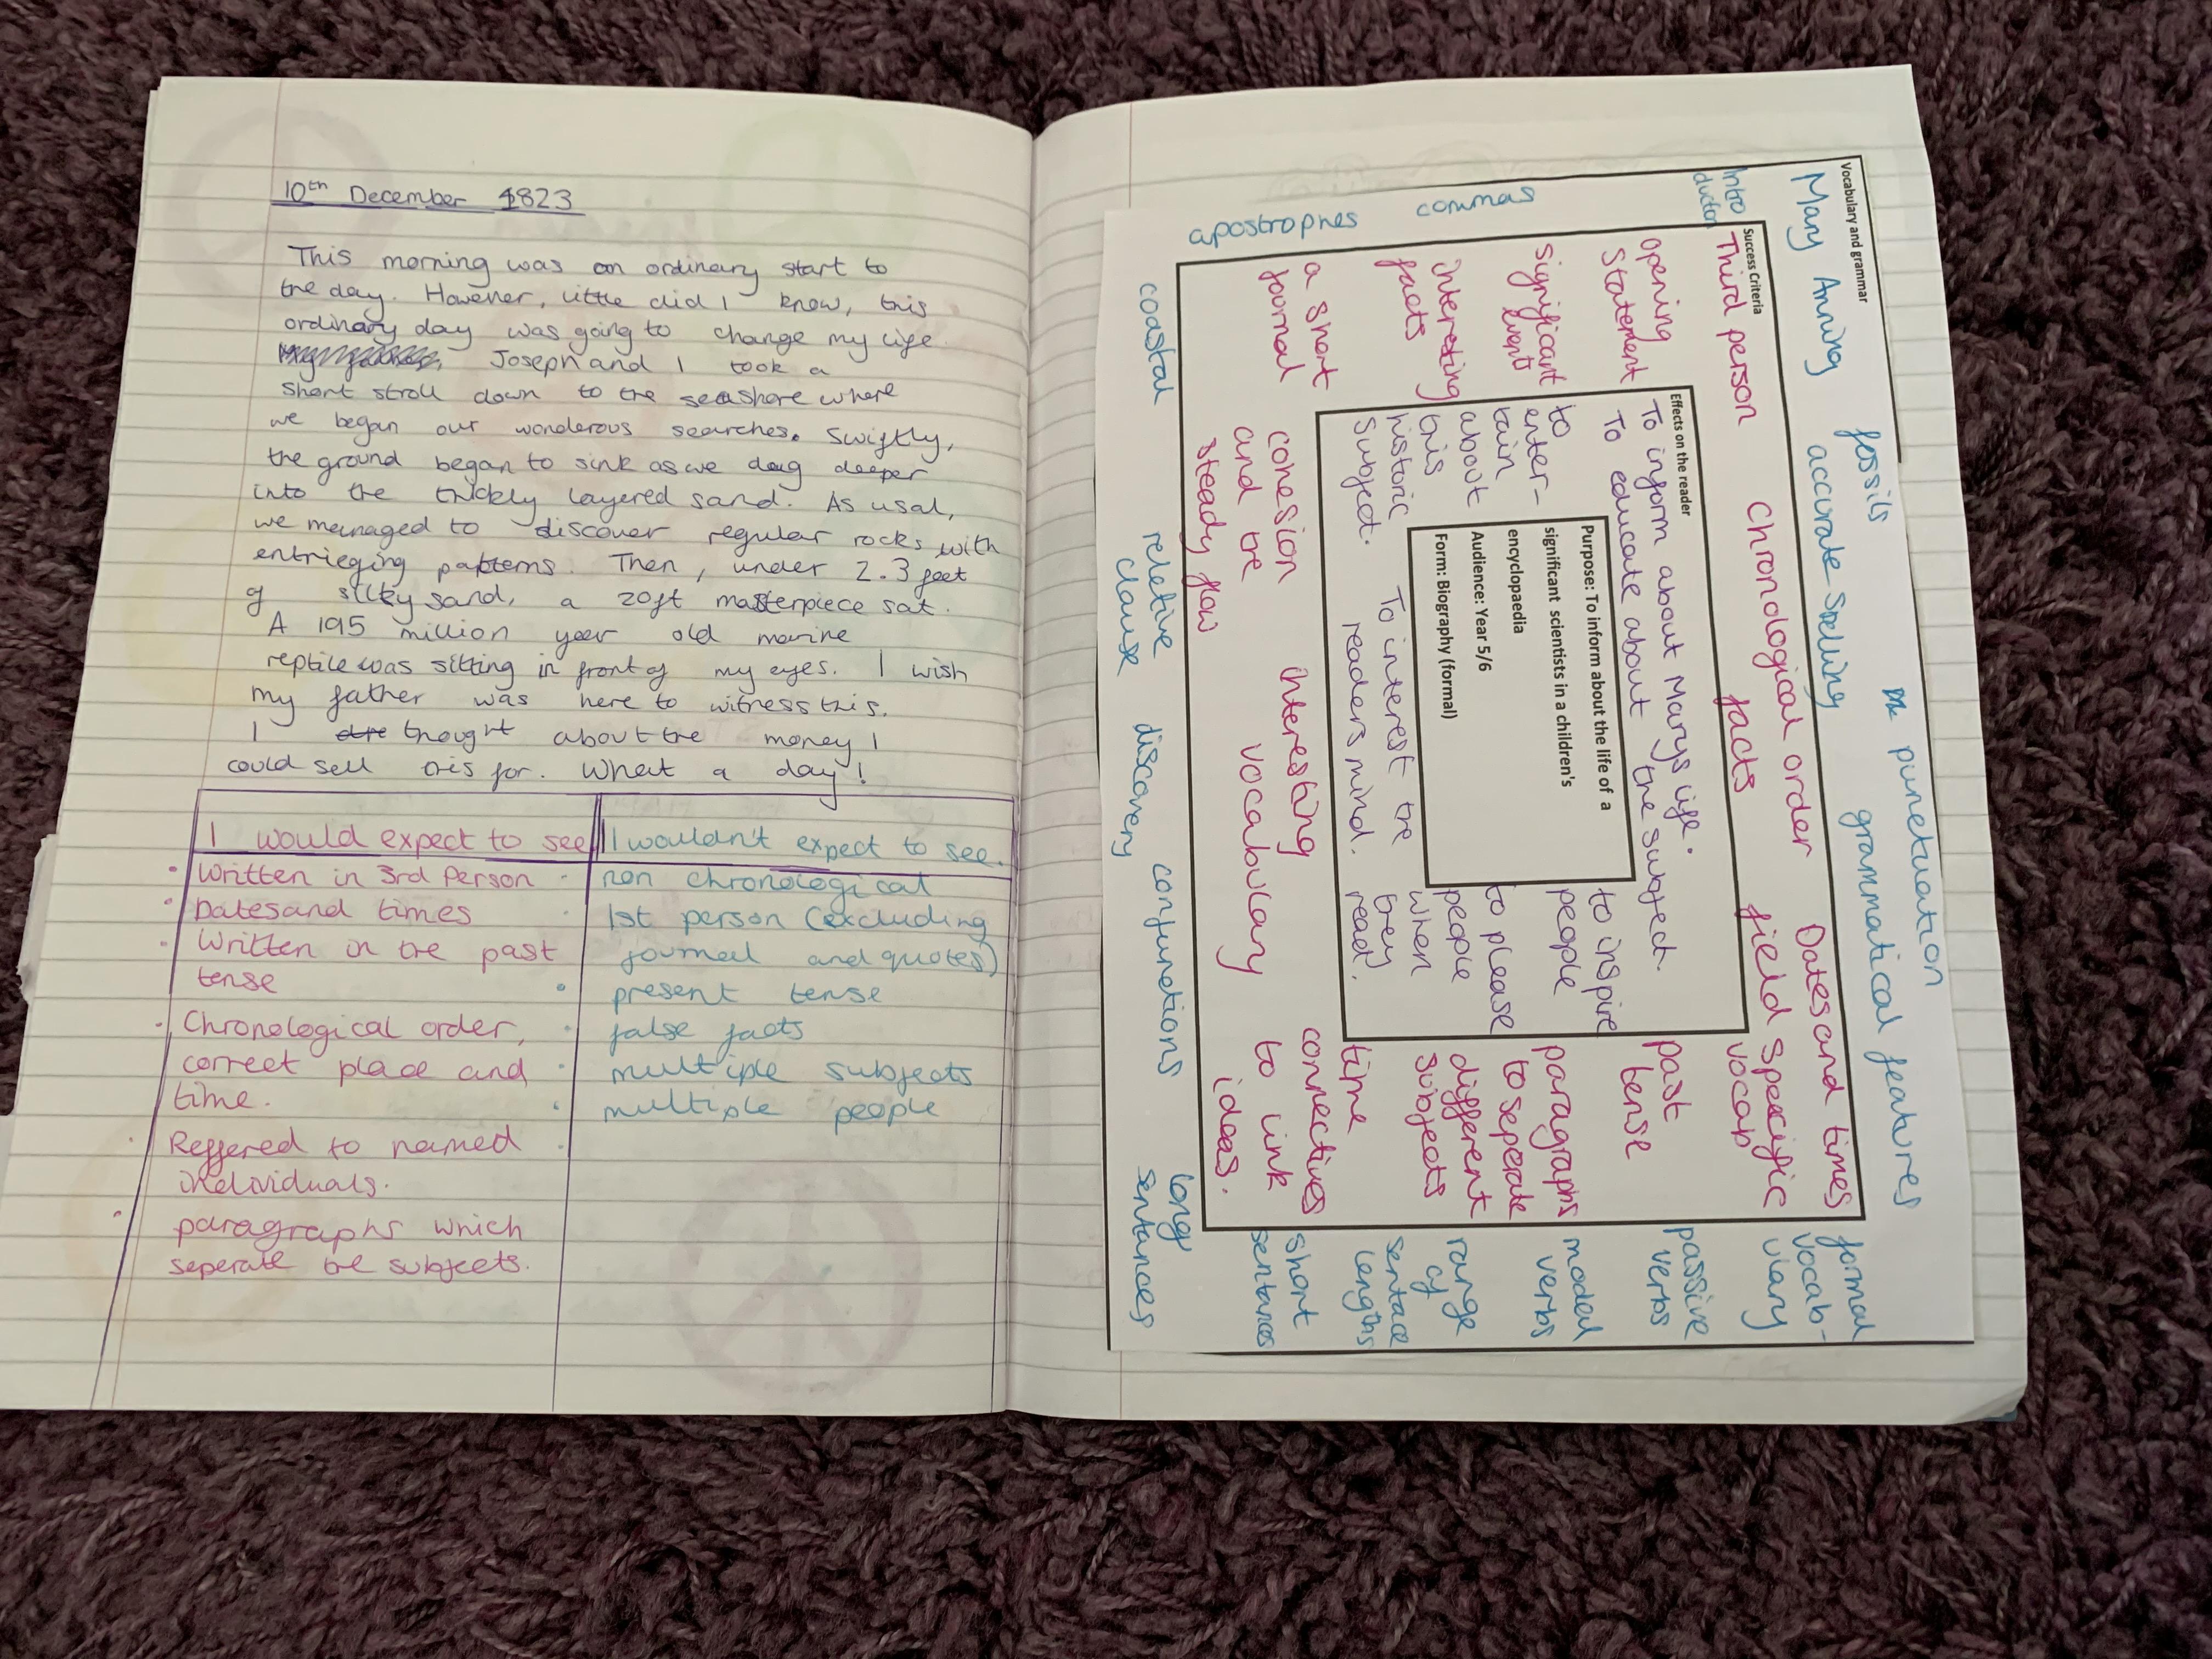 10th December 1823
This morning was an ordinary start to
the day. However, little did I know, this
ordinary day was going to change my life.
Joseph and I took a
short stroll down to the seashore where
we began our wonderous searches. Swiftly,
the ground began to sink as we dug deeper
into the thickly layered sand. As usal,
we managed to discover regular rocks with
entrieging patterns. Then, under 2.3 feet
of silky sand, a 20ft masterpiece sat.
A 195 million year old marine
reptile was sitting in front of my eyes. I wish
my father was here to witness this.
I thought about the money I
could sell this for. What a day!
I would expect to see
• Written in 3rd Person
• Dates and times
• Written in the past
tense
• Chronological order,
correct place and
time.
• Reffered to named
individuals.
• paragraphs which
seperate the subjects.
I wouldn't expect to see.
• non chronological
• 1st person (excluding
journal and quotes)
• present tense
• false facts
• multiple subjects
• multiple people
Vocabulary and grammar
Mary Anning
fossils
accurate spelling
punctuation
grammatical features
formal
vocab-
ulary
passive
verbs
model
verbs
range
of
sentace
lengths
short
sentances
long
sentances
conjunctions
discovery
reletive
clause
coastal
apostrophes
commas
Intro
ductory
Success Criteria
Third person
Chronological order
facts
Dates and times
field specific
vocab
opening
statement
significant
event
interesting
facts
a short
journal
past
tense
paragraphs
to seperate
different
subjects
time
connectives
to link
ideas.
interesting
vocabulary
cohesion
and the
steady flow
Effects on the reader
To inform about Marys life.
To educate about the subject.
to
enter-
tain
about
this
historic
subject.
to inspire
people
to please
people
when
they
read.
To interest the
readers mind.
Purpose: To inform about the life of a
significant scientists in a children's
encyclopaedia
Audience: Year 5/6
Form: Biography (formal)